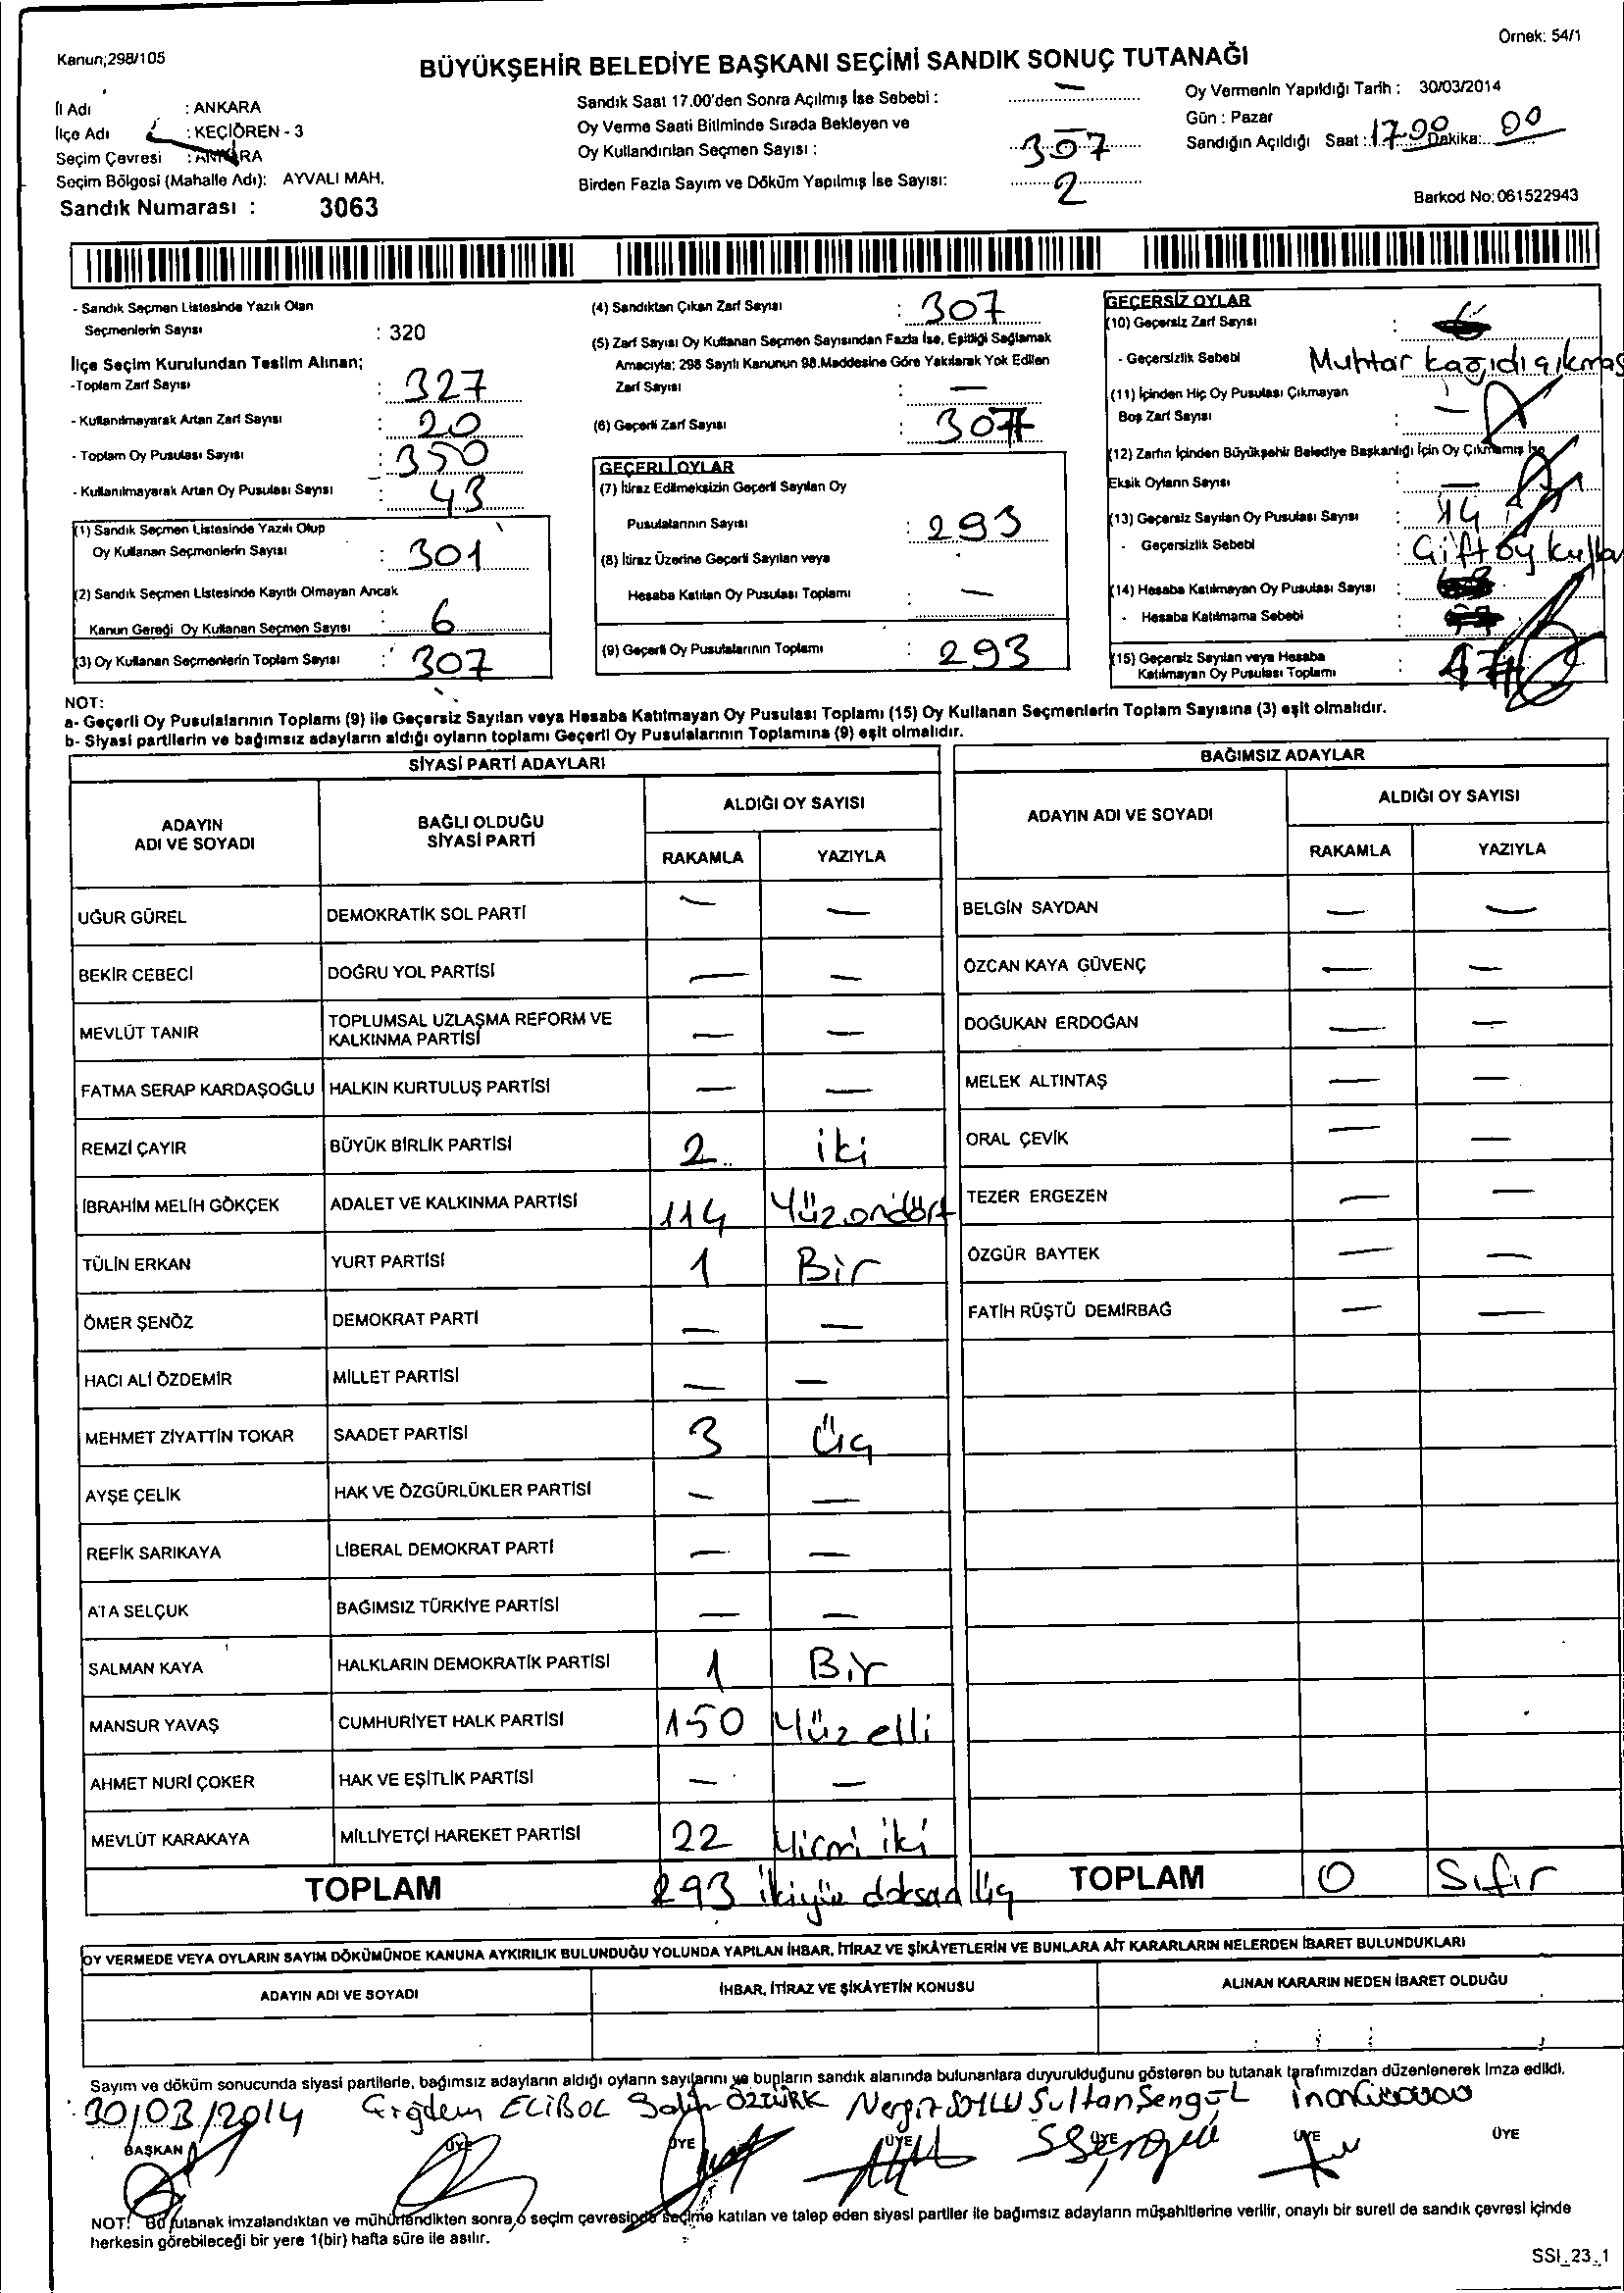 Kanun;298/105
Örnek: 54/1
BÜYÜKŞEHİR BELEDİYE BAŞKANI SEÇİMİ SANDIK SONUÇ TUTANAĞI
İl Adı : ANKARA
İlçe Adı : KEÇİÖREN - 3
Seçim Çevresi : ANKARA
Seçim Bölgesi (Mahalle Adı): AYVALI MAH.
Sandık Numarası : 3063
Sandık Saat 17.00'den Sonra Açılmış İse Sebebi : —
Oy Verme Saati Bitiminde Sırada Bekleyen ve
Oy Kullandırılan Seçmen Sayısı : 307
Birden Fazla Sayım ve Döküm Yapılmış İse Sayısı: 2
Oy Vermenin Yapıldığı Tarih : 30/03/2014
Gün : Pazar
Sandığın Açıldığı Saat : 17.00 Dakika: 00
Barkod No: 061522943
- Sandık Seçmen Listesinde Yazılı Olan
Seçmenlerin Sayısı : 320
İlçe Seçim Kurulundan Teslim Alınan;
-Toplam Zarf Sayısı : 327
- Kullanılmayarak Artan Zarf Sayısı : 20
- Toplam Oy Pusulası Sayısı : 350
- Kullanılmayarak Artan Oy Pusulası Sayısı : 43
(1) Sandık Seçmen Listesinde Yazılı Olup
Oy Kullanan Seçmenlerin Sayısı : 301
(2) Sandık Seçmen Listesinde Kayıtlı Olmayan Ancak
Kanun Gereği Oy Kullanan Seçmen Sayısı : 6
(3) Oy Kullanan Seçmenlerin Toplam Sayısı : 307
(4) Sandıktan Çıkan Zarf Sayısı : 307
(5) Zarf Sayısı Oy Kullanan Seçmen Sayısından Fazla İse, Eşitliği Sağlamak
Amacıyla; 298 Sayılı Kanunun 98.Maddesine Göre Yakılarak Yok Edilen
Zarf Sayısı : —
(6) Geçerli Zarf Sayısı : 307
GEÇERLİ OYLAR
(7) İtiraz Edilmeksizin Geçerli Sayılan Oy
Pusulalarının Sayısı : 293
(8) İtiraz Üzerine Geçerli Sayılan veya
Hesaba Katılan Oy Pusulası Toplamı : —
(9) Geçerli Oy Pusulalarının Toplamı : 293
GEÇERSİZ OYLAR
(10) Geçersiz Zarf Sayısı :
- Geçersizlik Sebebi Muhtar kağıdı çıkmas
(11) İçinden Hiç Oy Pusulası Çıkmayan
Boş Zarf Sayısı : —
(12) Zarfın İçinden Büyükşehir Belediye Başkanlığı İçin Oy Çıkmamış İse
Eksik Oyların Sayısı : —
(13) Geçersiz Sayılan Oy Pusulası Sayısı : 14
- Geçersizlik Sebebi : Çift oy kulla
(14) Hesaba Katılmayan Oy Pusulası Sayısı :
- Hesaba Katılmama Sebebi :
(15) Geçersiz Sayılan veya Hesaba
Katılmayan Oy Pusulası Toplamı :
NOT:
a- Geçerli Oy Pusulalarının Toplamı (9) ile Geçersiz Sayılan veya Hesaba Katılmayan Oy Pusulası Toplamı (15) Oy Kullanan Seçmenlerin Toplam Sayısına (3) eşit olmalıdır.
b- Siyasi partilerin ve bağımsız adayların aldığı oyların toplamı Geçerli Oy Pusulalarının Toplamına (9) eşit olmalıdır.
SİYASİ PARTİ ADAYLARI
ADAYIN ADI VE SOYADI
BAĞLI OLDUĞU SİYASİ PARTİ
ALDIĞI OY SAYISI
RAKAMLA YAZIYLA
UĞUR GÜREL DEMOKRATİK SOL PARTİ — —
BEKİR CEBECİ DOĞRU YOL PARTİSİ — —
MEVLÜT TANIR TOPLUMSAL UZLAŞMA REFORM VE KALKINMA PARTİSİ — —
FATMA SERAP KARDAŞOĞLU HALKIN KURTULUŞ PARTİSİ — —
REMZİ ÇAYIR BÜYÜK BİRLİK PARTİSİ 2 iki
İBRAHİM MELİH GÖKÇEK ADALET VE KALKINMA PARTİSİ 114 Yüzondört
TÜLİN ERKAN YURT PARTİSİ 1 Bir
ÖMER ŞENÖZ DEMOKRAT PARTİ — —
HACI ALİ ÖZDEMİR MİLLET PARTİSİ — —
MEHMET ZİYATTİN TOKAR SAADET PARTİSİ 3 Üç
AYŞE ÇELİK HAK VE ÖZGÜRLÜKLER PARTİSİ — —
REFİK SARIKAYA LİBERAL DEMOKRAT PARTİ — —
ATA SELÇUK BAĞIMSIZ TÜRKİYE PARTİSİ — —
SALMAN KAYA HALKLARIN DEMOKRATİK PARTİSİ 1 Bir
MANSUR YAVAŞ CUMHURİYET HALK PARTİSİ 150 Yüz elli
AHMET NURİ ÇOKER HAK VE EŞİTLİK PARTİSİ — —
MEVLÜT KARAKAYA MİLLİYETÇİ HAREKET PARTİSİ 22 Yirmi iki
TOPLAM 293 ikiyüz doksan üç
BAĞIMSIZ ADAYLAR
ADAYIN ADI VE SOYADI
ALDIĞI OY SAYISI
RAKAMLA YAZIYLA
BELGİN SAYDAN — —
ÖZCAN KAYA GÜVENÇ — —
DOĞUKAN ERDOĞAN — —
MELEK ALTINTAŞ — —
ORAL ÇEVİK — —
TEZER ERGEZEN — —
ÖZGÜR BAYTEK — —
FATİH RÜŞTÜ DEMİRBAĞ — —
TOPLAM 0 Sıfır
OY VERMEDE VEYA OYLARIN SAYIM DÖKÜMÜNDE KANUNA AYKIRILIK BULUNDUĞU YOLUNDA YAPILAN İHBAR, İTİRAZ VE ŞİKÂYETLERİN VE BUNLARA AİT KARARLARIN NELERDEN İBARET BULUNDUKLARI
ADAYIN ADI VE SOYADI
İHBAR, İTİRAZ VE ŞİKÂYETİN KONUSU
ALINAN KARARIN NEDEN İBARET OLDUĞU
Sayım ve döküm sonucunda siyasi partilerle, bağımsız adayların aldığı oyların sayılarını ve bunların sandık alanında bulunanlara duyurulduğunu gösteren bu tutanak tarafımızdan düzenlenerek imza edildi.
30/03/2014 Çiğdem ELİBOL Salih ÖZTÜRK Nergiz Sultan Şengül
BAŞKAN ÜYE ÜYE ÜYE ÜYE ÜYE ÜYE
NOT: Bu tutanak imzalandıktan ve mühürlendikten sonra, o seçim çevresinde seçime katılan ve talep eden siyasi partiler ile bağımsız adayların müşahitlerine verilir, onaylı bir sureti de sandık çevresi içinde
herkesin görebileceği bir yere 1(bir) hafta süre ile asılır.
SSI_23_1